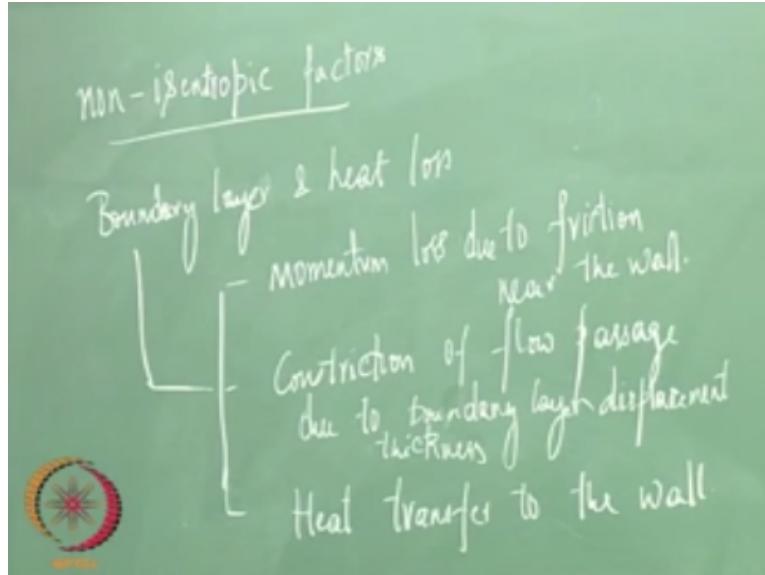 non-isentropic factors
Boundary layer & heat loss
- Momentum loss due to friction
near the wall.
- Constriction of flow passage
due to boundary layer displacement
thickness
- Heat transfer to the wall
NPTEL